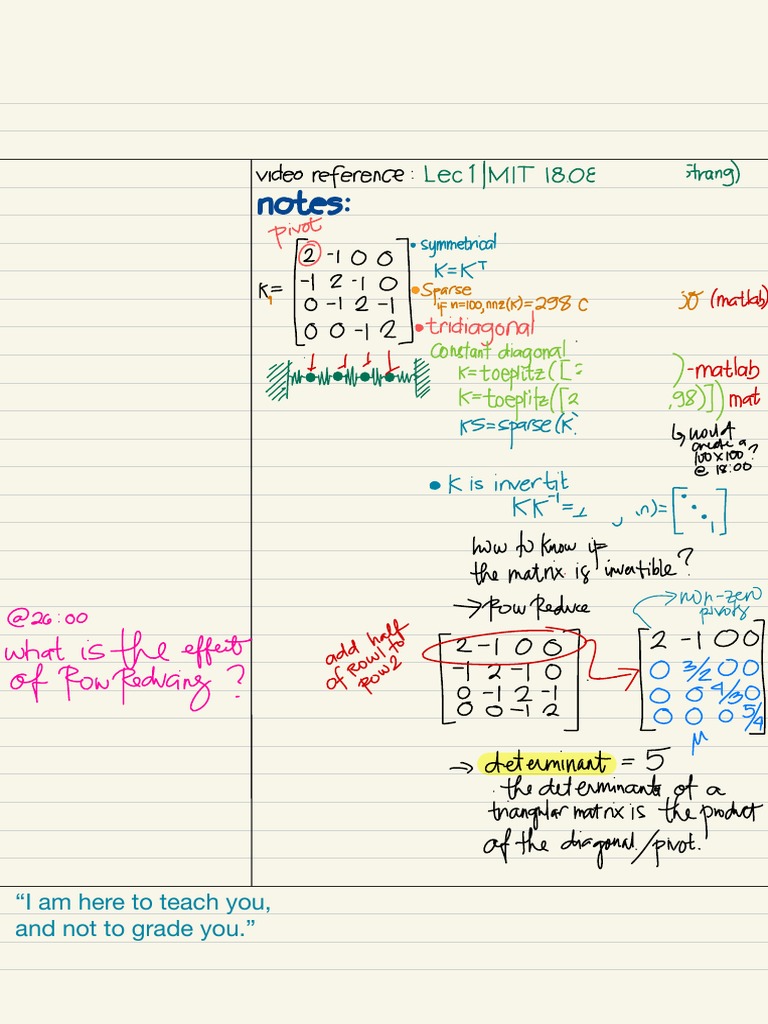 video reference: Lec 1 | MIT 18.08 Strang)
notes:
pivot
K₁ =
2 -1 0 0
-1 2 -1 0
0 -1 2 -1
0 0 -1 2
• symmetrical
K = Kᵀ
• Sparse
if n=100, nnz(K) = 298 (matlab)
• tridiagonal
Constant diagonal
K=toeplitz([ ) -matlab
K=toeplitz([2 ,98)]) mat
KS=sparse(K
↳ would
create a
100x100?
@ 18:00
• K is
KK⁻¹= ,n)=
1
how to know if
the matrix is invatible?
→ Row Reduce
→ non-zero
pivors
@26:00
what is the effect
of Row Reducing ?
add half
of Row1 to
Row2
2 -1 0 0
-1 2 -1 0
0 -1 2 -1
0 0 -1 2
2 -1 0 0
0 3/2 0 0
0 0 4/3 0
0 0 0 5/4
→ determinant = 5
. the determinants of a
triangular matrix is the product
of the diagonal/pivot.
“I am here to teach you,
and not to grade you.”